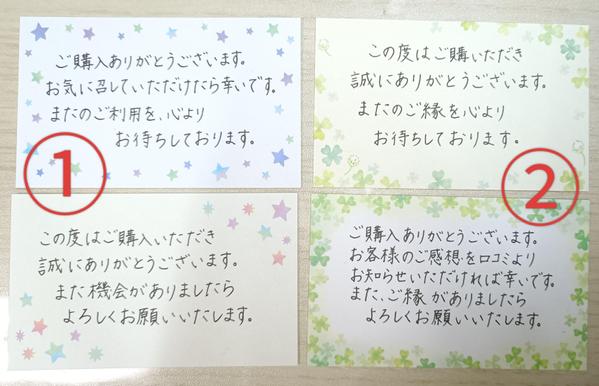 ご購入ありがとうございます。
お気に召していただけたら幸いです。
またのご利用を、心より
お待ちしております。
①
この度はご購いただき
誠にありがとうございます。
またのご縁を心より
お待ちしております。
②
この度はご購入いただき
誠にありがとうございます。
また機会がありましたら
よろしくお願いいたします。
ご購入ありがとうございます。
お客様のご感想を口コミより
お知らせいただければ幸いです。
また、ご縁がありましたら
よろしくお願いいたします。